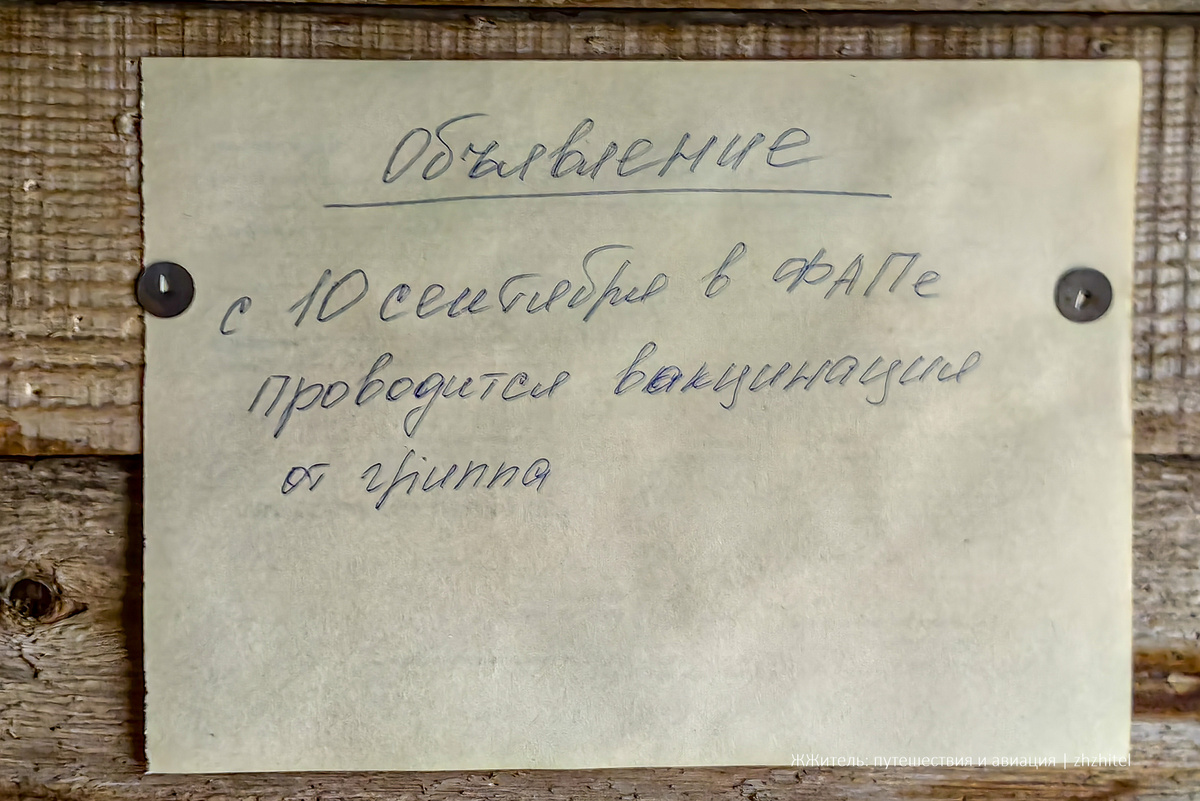 Объявление
с 10 сентября в ФАПе
проводится вакцинация
от гриппа
ЖЖитель: путешествия и авиация | zhzhitel